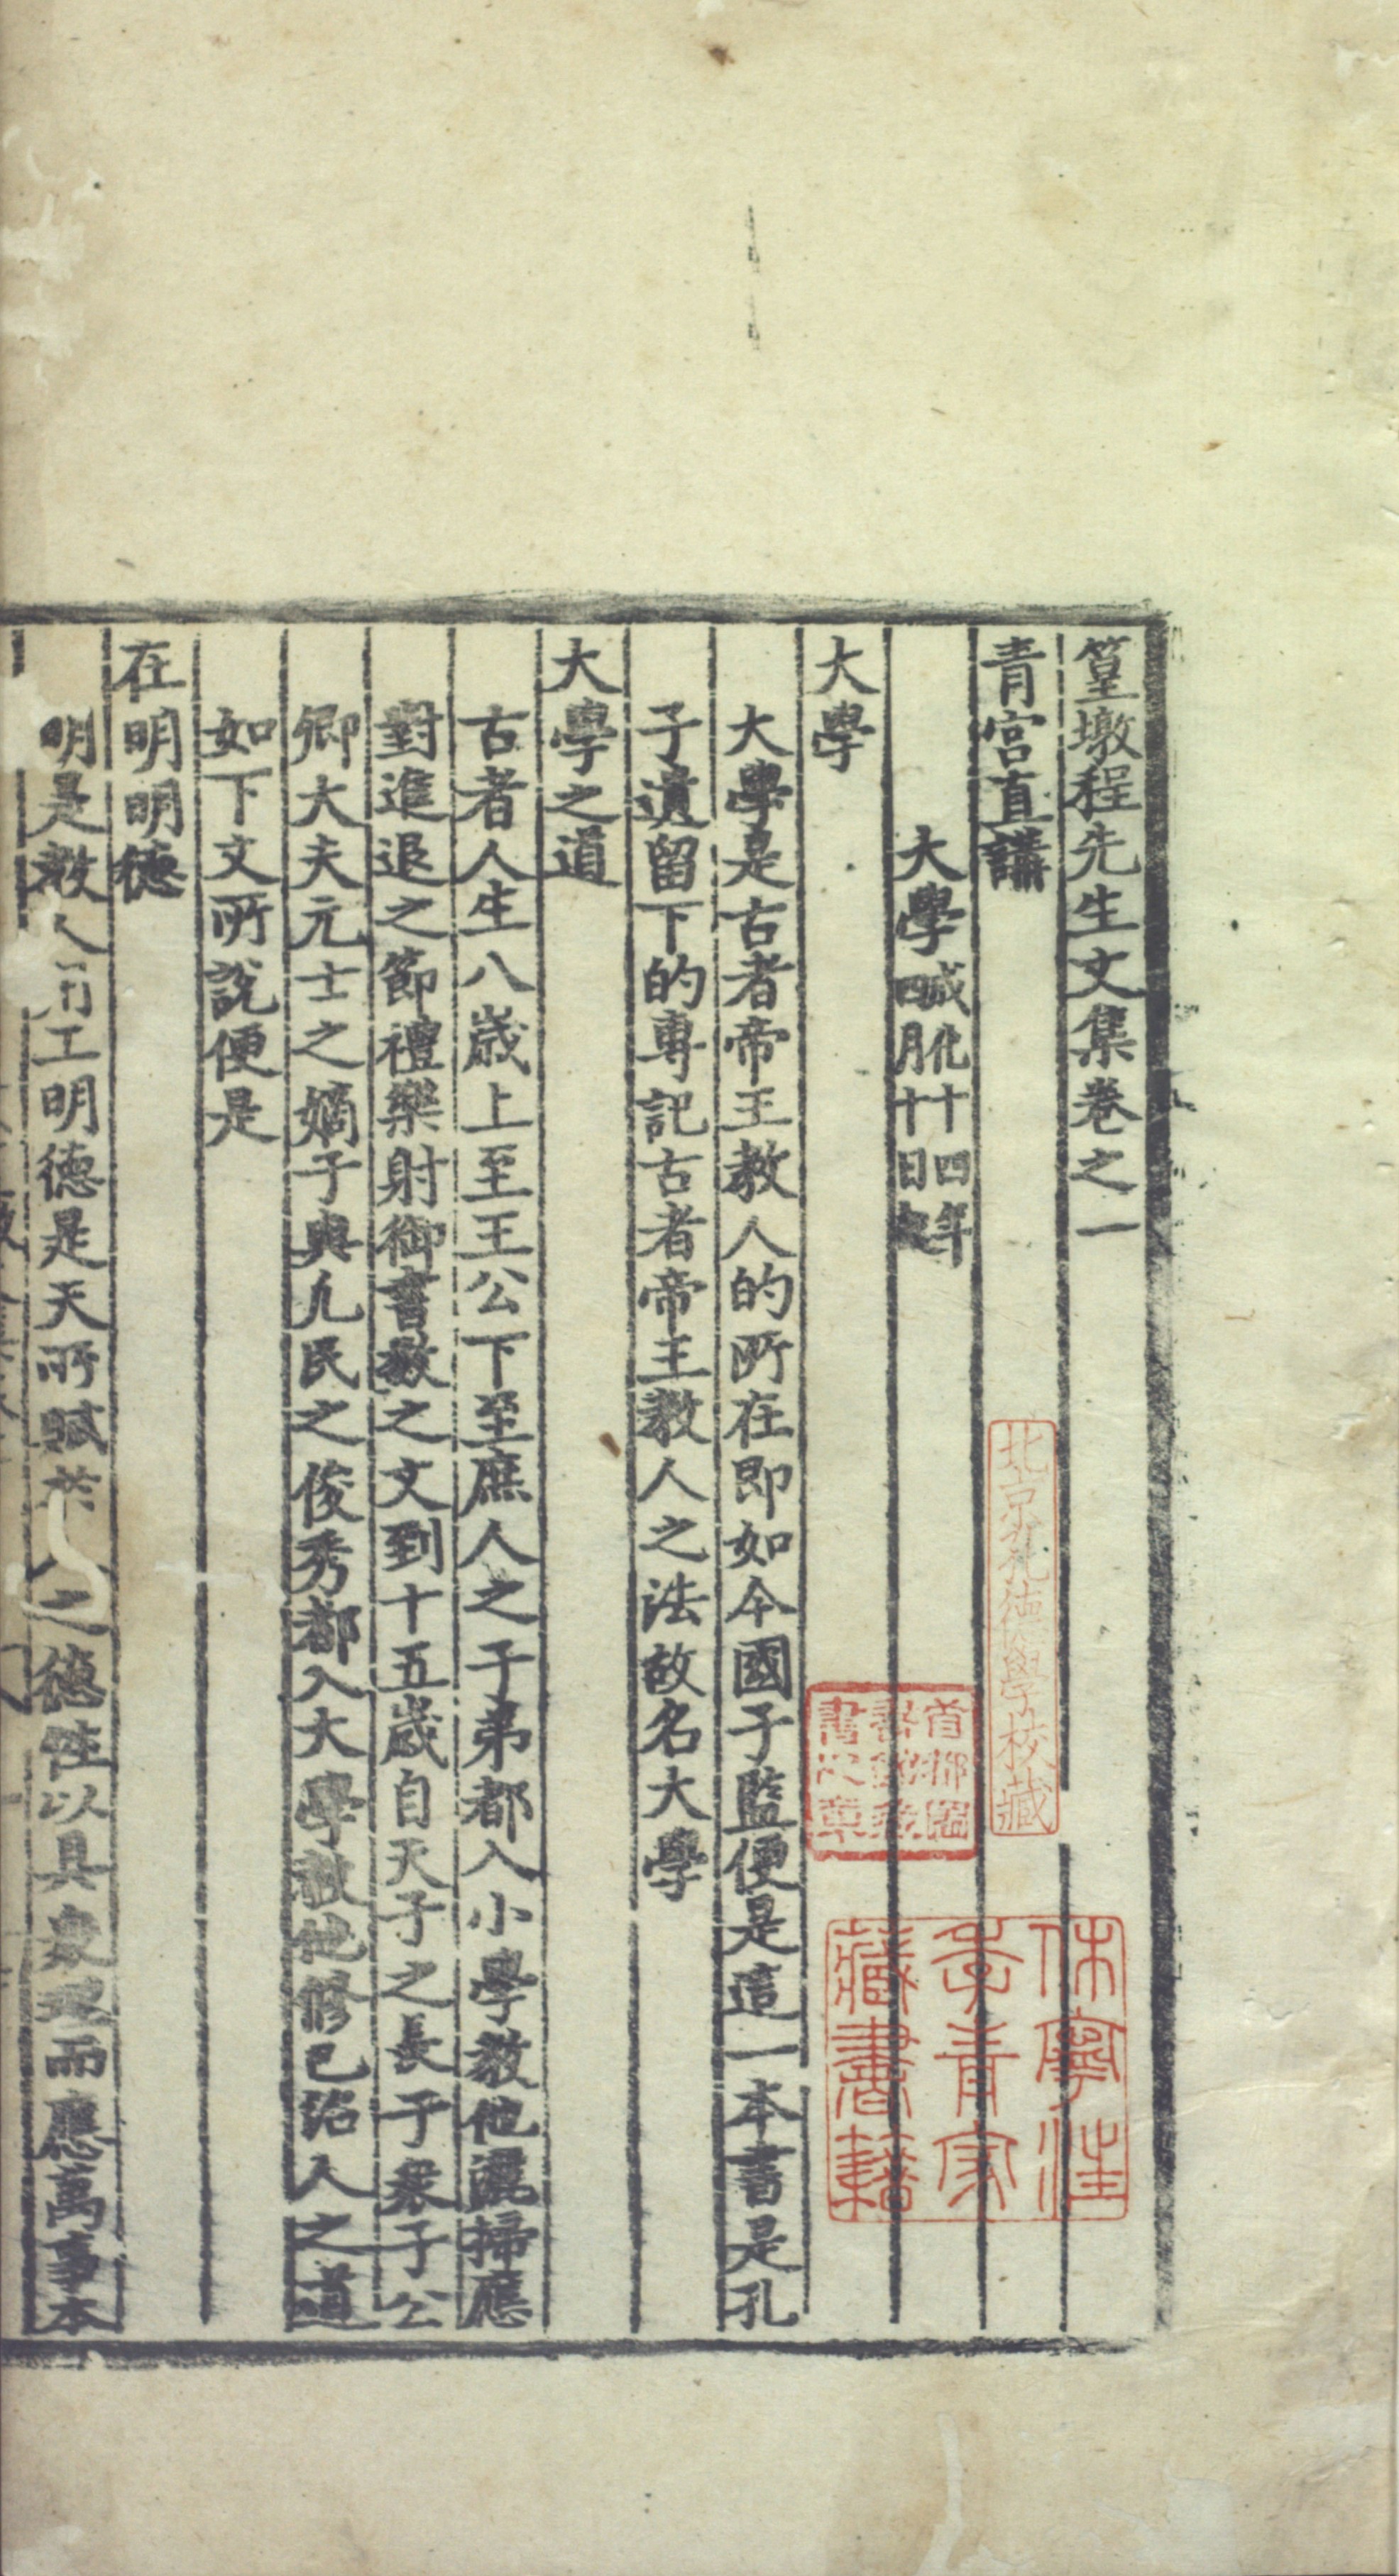 篁墩程先生文集卷之一
青宮直講
大學 成化十四年
四月十日起
大學
大學是古者帝王教人的所在即如今國子監便是這一本書是孔
子遺留下的專記古者帝王教人之法故名大學
大學之道
古者人生八歲上至王公下至庶人之子弟都入小學教他灑掃應
對進退之節禮樂射御書數之文到十五歲自天子之長子衆子公
卿大夫元士之嫡子與凡民之俊秀都入大學教他修己治人之道
如下文所說便是
在明明德
明是教人用工明德是天所賦於人之德性以具衆理而應萬事本
北京孔德學校藏
首都圖
書館藏
書之章
休寧汪
季青家
藏書籍